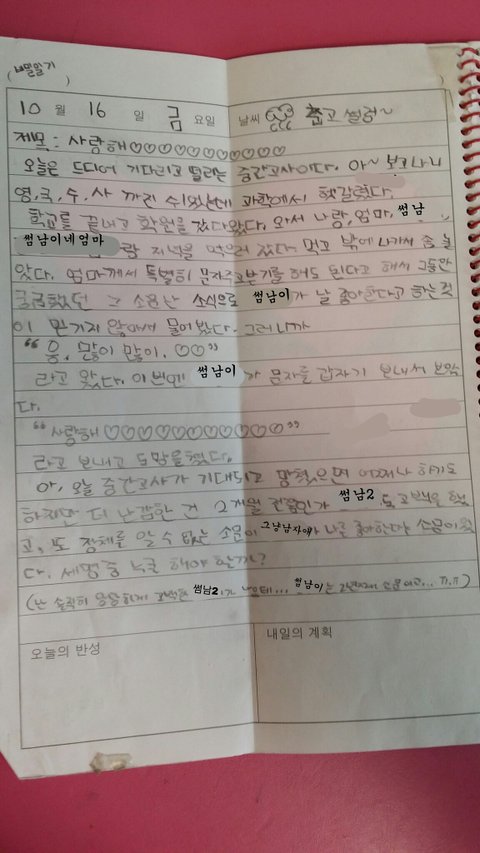 (비밀일기)
10 월 16 일 금 요일 날씨 춥고 설렁~
제목 : 사랑해♡♡♡♡♡♡♡♡♡♡♡
오늘은 드디어 기다리고 떨리는 중간고사이다. 아~ 보고나니
영,국,수,사 까진 쉬웠는데 과학에서 헷갈렸다.
학교를 끝내고 학원을 갔다왔다. 와서 나랑, 엄마, 썸남
썸남이네엄마 랑 저녁을 먹으러 갔다. 먹고 밖에 나가서 좀 놀
았다. 엄마께서 특별히 문자주고받기를 해도 된다고 해서 그동안
궁금했던 그 소용난 소식으로 썸남이가 날 좋아한다고 하는것
이 믿기지 않아서 물어봤다. 그러니까
“응, 많이 많이. ♡♡”
라고 왔다. 이번엔 썸남이가 문자를 갑자기 보내서 보았
다.
“사랑해♡♡♡♡♡♡♡♡♡♡♡”
라고 보내고 도망을쳤다.
아, 오늘 중간고사가 기대되고 망쳤으면 어쩌나 하기도
하지만 더 난감한 건 2개월 전쯤인가 썸남2 도 고백을 했
고, 또 정체를 알 수 없는 소문이 그냥남자애가 나를 좋아한다 소문이 왔
다. 세명중 누굴 해야 할까?
(난 솔직히 당당하게 고백한 썸남2가 나은데... 썸남이는 소문이고... ㅠ.ㅠ)
오늘의 반성
내일의 계획